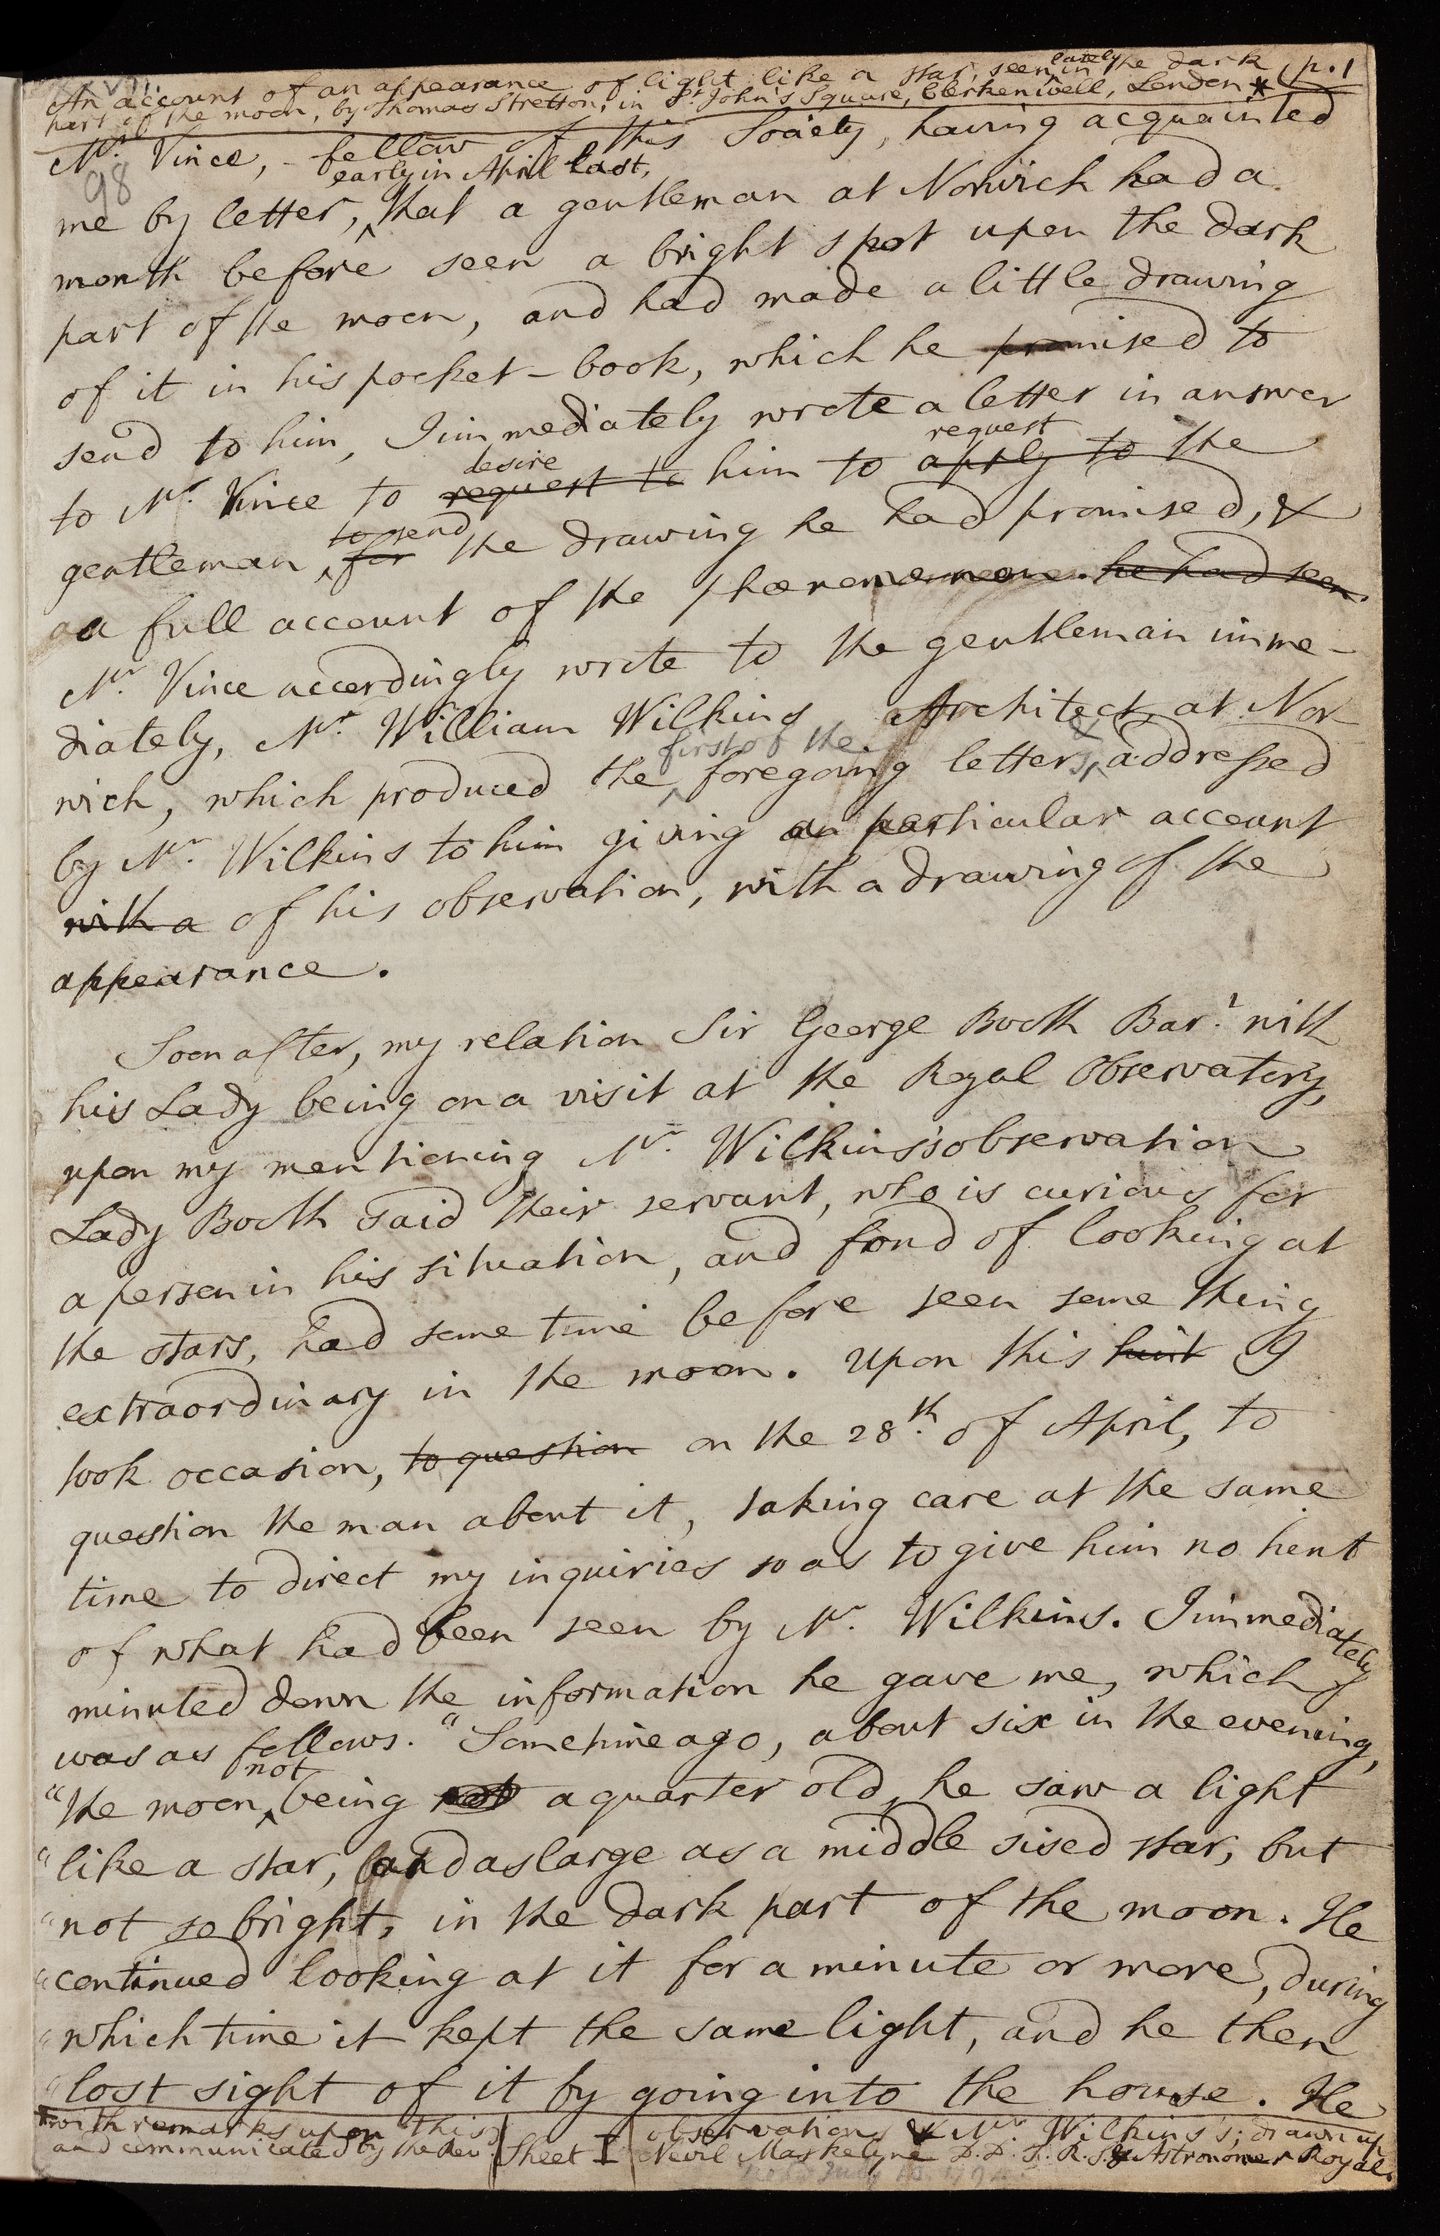 An account of an appearance of light like a star, seen lately in the dark p.1
part of the moon, by Thomas Stretton, in St. John's Square, Clerkenwell, London *
Mr. Vince, - fellow of this Society, having acquainted
98
early in April last,
me by letter, that a gentleman at Norwich had a
month before seen a bright spot upon the dark
part of the moon, and had made a little drawing
of it in his pocket-book, which he promised to
send to him, I immediately wrote a letter in answer
desire request
to Mr. Vince to request to him to apply to the
to send
gentleman for the drawing he had promised, &
a full account of the phænomenon. he had seen.
Mr. Vince accordingly wrote to the gentleman imme-
diately, Mr. William Wilkins Architect at Nor-
first of the &
wich, which produced the foregoing letters addressed
by Mr. Wilkins to him giving a particular account
with a of his observation, with a drawing of the
appearance.
Soon after, my relation Sir George Booth Bart. with
his Lady being on a visit at the Royal Observatory,
upon my mentioning Mr. Wilkins's observation
Lady Booth said their servant, who is curious for
a person in his situation, and fond of looking at
the stars, had some time before seen some thing
extraordinary in the moon. Upon this hint I
took occasion, to question on the 28th. of April, to
question the man about it, taking care at the same
time to direct my inquiries so as to give him no hint
of what had been seen by Mr. Wilkins. I immediately
minuted down the information he gave me, which
was as follows. "Sometime ago, about six in the evening,
not
"the moon being not a quarter old, he saw a light
"like a star, and as large as a middle sised star, but
"not so bright, in the dark part of the moon. He
"continued looking at it for a minute or more, during
"which time it kept the same light, and he then
"lost sight of it by going into the house. He
*with remarks upon this observation & Mr. Wilkins's; drawn up
and communicated by the Rev. Sheet I Nevil Maskelyne D.D. F.R.S. & Astronomer Royal.